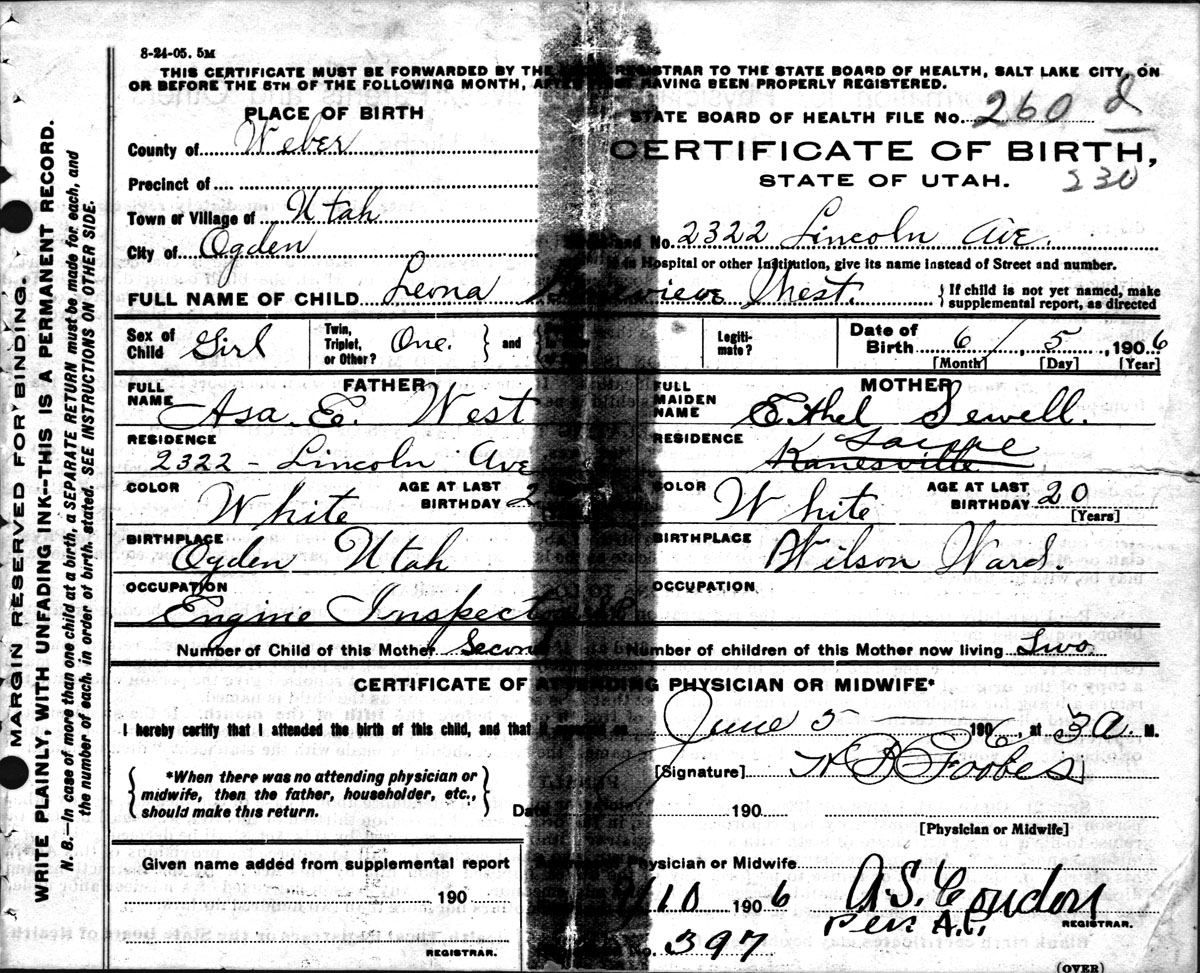 8-24-05. 5M
THIS CERTIFICATE MUST BE FORWARDED BY THE REGISTRAR TO THE STATE BOARD OF HEALTH, SALT LAKE CITY, ON
OR BEFORE THE 5TH OF THE FOLLOWING MONTH, AFTER HAVING BEEN PROPERLY REGISTERED.
PLACE OF BIRTH
STATE BOARD OF HEALTH FILE No. 260 2
County of Weber
CERTIFICATE OF BIRTH,
Precinct of
STATE OF UTAH. 230
Town or Village of Utah
City of Ogden
and No. 2322 Lincoln Ave.
in Hospital or other Institution, give its name instead of Street and number.
FULL NAME OF CHILD Leona West.
If child is not yet named, make
supplemental report, as directed
Sex of Child Girl
Twin, Triplet, or Other? One. and
Legiti-mate?
Date of Birth 6 / 5, 1906
[Month] [Day] [Year]
FATHER
FULL NAME Asa E. West
MOTHER
FULL MAIDEN NAME Ethel Sewell.
RESIDENCE 2322 - Lincoln Ave
RESIDENCE Kanesville
COLOR White
AGE AT LAST BIRTHDAY 2
COLOR White
AGE AT LAST BIRTHDAY 20
[Years]
BIRTHPLACE Ogden Utah
BIRTHPLACE Wilson Ward.
OCCUPATION Engine Inspector
OCCUPATION
Number of Child of this Mother Second
Number of children of this Mother now living Two
CERTIFICATE OF ATTENDING PHYSICIAN OR MIDWIFE*
I hereby certify that I attended the birth of this child, and that it occurred on June 5 1906, at 3 A. M.
*When there was no attending physician or
midwife, then the father, householder, etc.,
should make this return.
[Signature]
Date 190
[Physician or Midwife]
Given name added from supplemental report
190
REGISTRAR.
Physician or Midwife
9/10 1906
A.S. Condon
Per. A.C.
REGISTRAR.
No. 397
(OVER)
MARGIN RESERVED FOR BINDING.
WRITE PLAINLY, WITH UNFADING INK--THIS IS A PERMANENT RECORD.
N. B.—In case of more than one child at a birth, a SEPARATE RETURN must be made for each, and
the number of each, in order of birth, stated. SEE INSTRUCTIONS ON OTHER SIDE.